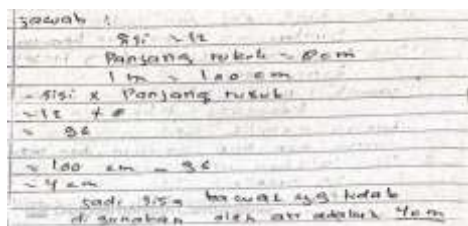 Jawab :
Sisi = 12
Panjang rusuk = 8 cm
1 m = 100 cm
= sisi x Panjang rusuk
= 12 x 8
= 96
= 100 cm - 96
= 4 cm
Jadi sisa kawat yg tidak
di gunakan oleh ari adalah 4 cm